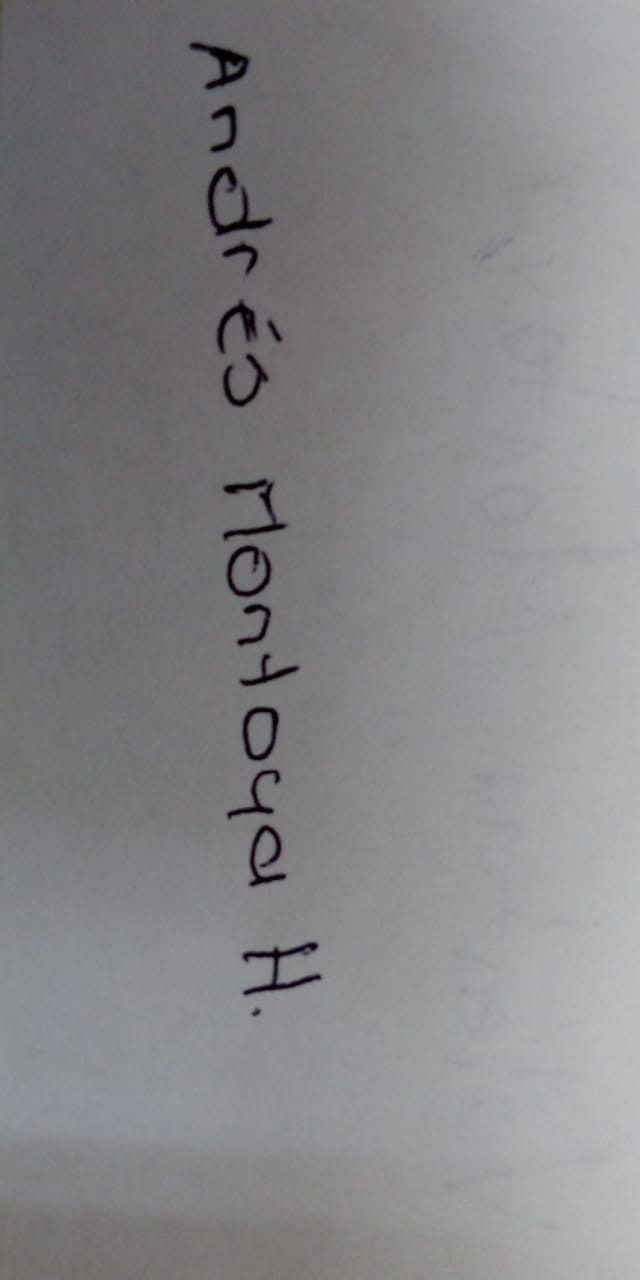 Andrés Montoya H.